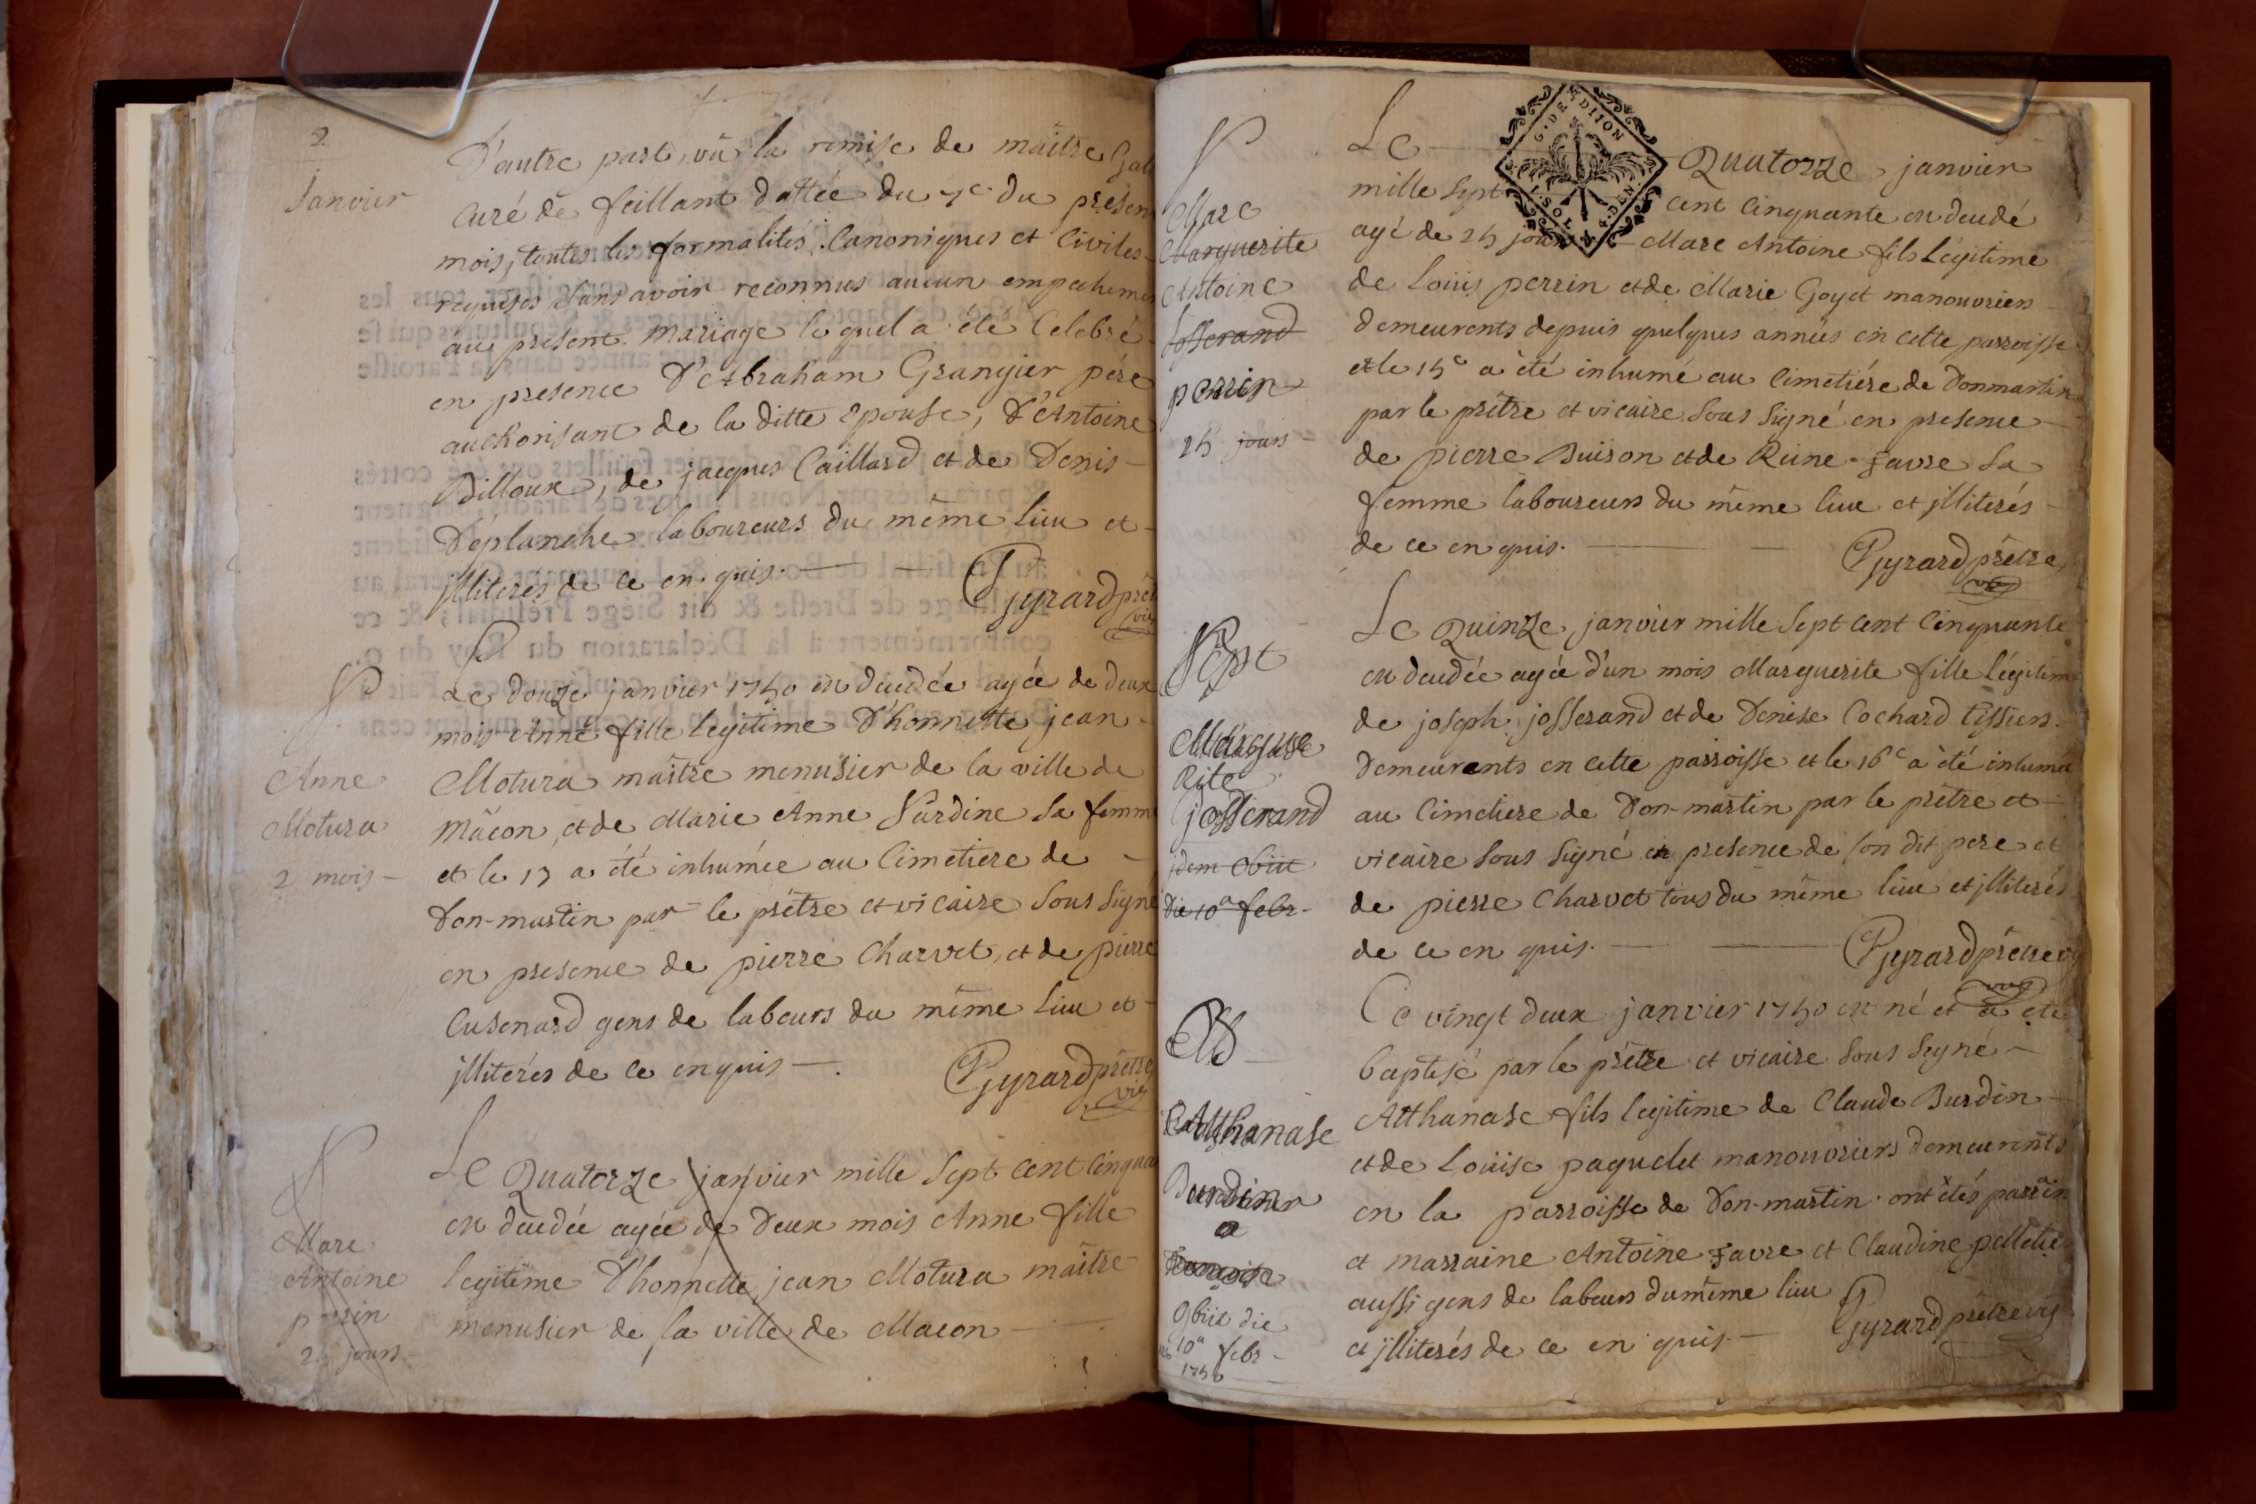 2
Janvier
D'autre part, vû la remise de maitre
curé de feillant dattée du 7e du présen
mois, toutes les formalités Canoniques et Civiles
requises sans avoir reconnus aucun empechemen
au present mariage lequel a été Celebré
en presence D'Abraham Grangier père
authorisant de la ditte Epouse, D'Antoine
Dilloux, de jacques Caillard et de Denis
Déplanche laboureurs du même lieu et
jlliterés de ce enquis.
Gyrard prêt
vic
S
Anne
Motura
2 mois
Le douze janvier 1750 est decedée agée de deux
mois Anne fille legitime D'honnette jean
Motura maître menusier de la ville de
Mâcon, et de Marie Anne Sardine sa femm
et le 13 a été inhumée au Cimetiere de
Don-martin par le prêtre et vicaire sous signé
en presence de pierre Charvet, et de pierre
Cusenard gens de labeurs du même lieu et
jlliterés de ce enquis
Gyrard prêtre
vic
S
Marc
Antoine
perrin
25 jours
Le Quatorze janvier mille sept cent cinquan
est decedée agée de Deux mois Anne fille
legitime D'honnette jean Motura maître
menusier de la ville de Macon
S
Marc
Marguerite
Antoine
Josserand
perrin
25 jours
G. DE DIION
Le Quatorze janvier
mille sept cent cinquante est decedé
agé de 25 jours Marc Antoine fils Légitime
de Louis perrin et de Marie Goyet manouvriers
demeurents depuis quelques années en cette parroisse
et le 15e a été inhumé au Cimetiére de Donmartin
par le prêtre et vicaire sous signé en presence
de pierre Buison et de Reine favre sa
femme laboureurs du même lieu et jlliterés
de ce enquis.
Gyrard prêtre
vic
Sept
Marguerite
Rite
Josserand
idem obiit
die 10a febr.
Le Quinze janvier mille sept cent Cinquante
est decedée agée d'un mois Marguerite fille Légitime
de joseph josserand et de Denise Cochard tissiers
demeurents en cette parroisse et le 16e a été inhumée
au Cimetiere de Don-martin par le prêtre et
vicaire sous signé en presence de son dit pere et
de pierre Charvet tous du même lieu et jlliterés
de ce enquis.
Gyrard prêtre vic
B
Atthanase
Burdin
obiit die
10a febr
1750
Le vingt deux janvier 1750 est né et a été
baptisé par le prêtre et vicaire sous signé
Atthanase fils legitime de Claude Burdin
et de Loüise paquelet manouvriers demeurents
en la parroisse de Don-martin. ont étés parrin
et marraine Antoine favre et Claudine pelletie
aussi gens de labeurs du même lieu
et jlliterés de ce en quis.
Gyrard prêtre vic